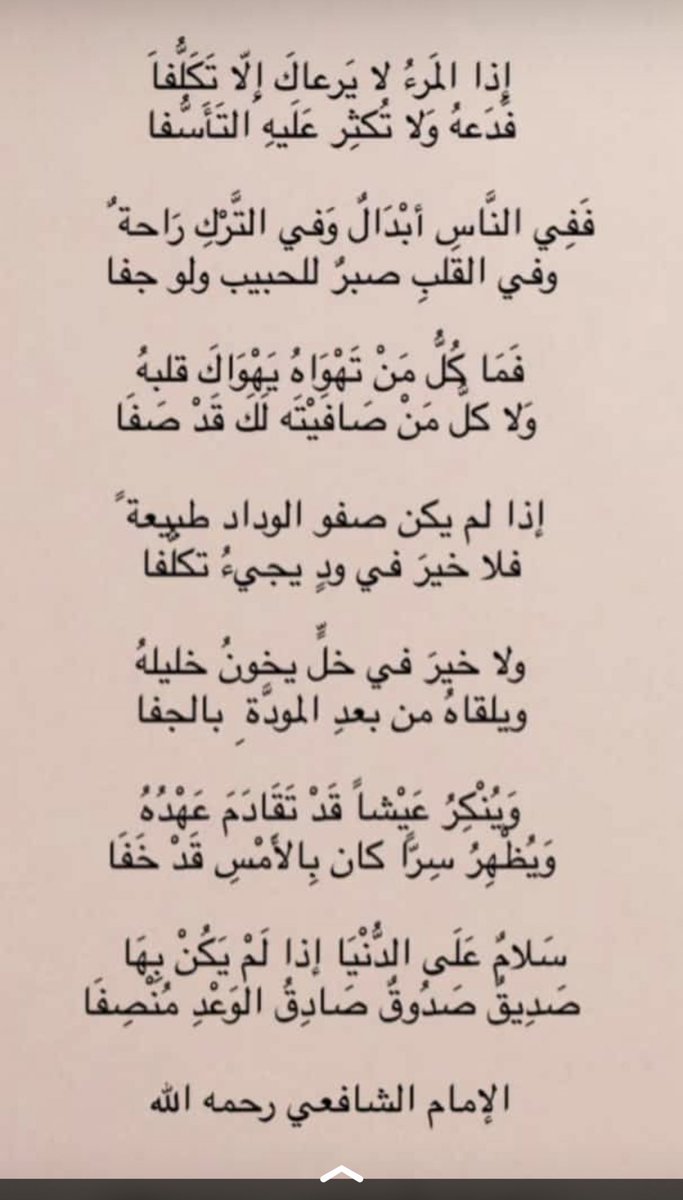 إِذا المَرءُ لا يَرعاكَ إِلّا تَكَلُّفاَ
فَدَعهُ وَلا تُكثِر عَلَيهِ التَأَسُّفا
فَفِي النَّاسِ أبْدَالٌ وَفي التَّرْكِ رَاحة ٌ
وفي القلبِ صبرٌ للحبيب ولو جفا
فَمَا كُلُّ مَنْ تَهْوَاهُ يَهْوَاكَ قلبهُ
وَلا كلُّ مَنْ صَافَيْتَه لَكَ قَدْ صَفَا
إذا لم يكن صفو الوداد طبيعة ً
فلا خيرَ في ودٍ يجيءُ تكلُّفا
ولا خيرَ في خلٍّ يخونُ خليلهُ
ويلقاهُ من بعدِ المودَّة ِ بالجفا
وَيُنْكِرُ عَيْشاً قَدْ تَقَادَمَ عَهْدُهُ
وَيُظْهِرُ سِرًّا كان بِالأَمْسِ قَدْ خَفَا
سَلامٌ عَلَى الدُّنْيَا إذا لَمْ يَكُنْ بِهَا
صَدِيقٌ صَدُوقٌ صَادِقُ الوَعْدِ مُنْصِفَا
الإمام الشافعي رحمه الله